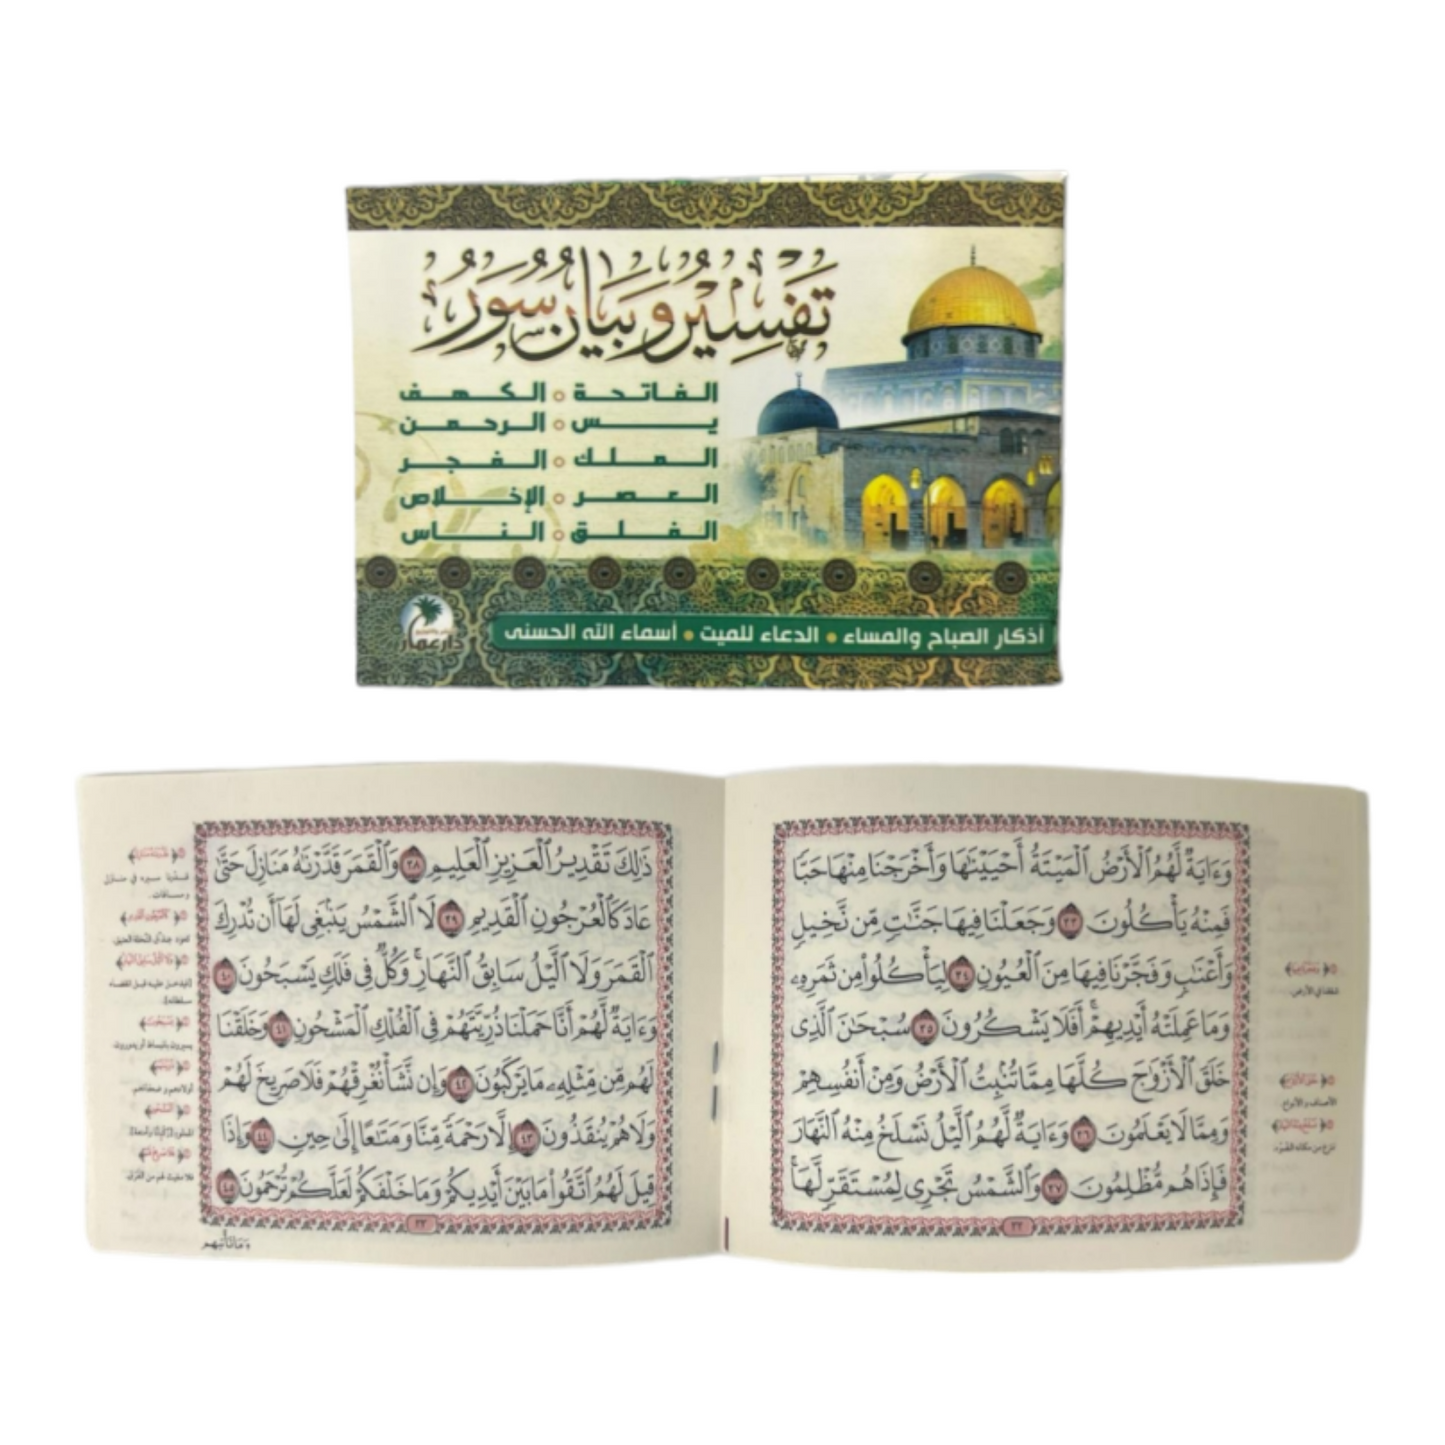 تفسير وبيان سور
الفاتحة • الكهف
يس • الرحمن
الملك • الفجر
العصر • الإخلاص
الفلق • الناس
أذكار الصباح والمساء • الدعاء للميت • أسماء الله الحسنى
دار عمار
وَءَايَةٌ لَّهُمُ ٱلْأَرْضُ ٱلْمَيْتَةُ أَحْيَيْنَٰهَا وَأَخْرَجْنَا مِنْهَا حَبًّا
فَمِنْهُ يَأْكُلُونَ ٣٣ وَجَعَلْنَا فِيهَا جَنَّٰتٍ مِّن نَّخِيلٍ
وَأَعْنَٰبٍ وَفَجَّرْنَا فِيهَا مِنَ ٱلْعُيُونِ ٣٤ لِيَأْكُلُوا۟ مِن ثَمَرِهِۦ
وَمَا عَمِلَتْهُ أَيْدِيهِمْ ۖ أَفَلَا يَشْكُرُونَ ٣٥ سُبْحَٰنَ ٱلَّذِى
خَلَقَ ٱلْأَزْوَٰجَ كُلَّهَا مِمَّا تُنۢبِتُ ٱلْأَرْضُ وَمِنْ أَنفُسِهِمْ
وَمِمَّا لَا يَعْلَمُونَ ٣٦ وَءَايَةٌ لَّهُمُ ٱلَّيْلُ نَسْلَخُ مِنْهُ ٱلنَّهَارَ
فَإِذَا هُم مُّظْلِمُونَ ٣٧ وَٱلشَّمْسُ تَجْرِى لِمُسْتَقَرٍّ لَّهَا ۚ
٢٢
شققنا في الأرض.
الأصناف والأنواع.
ننزع من مكانه الضوء.
ذَٰلِكَ تَقْدِيرُ ٱلْعَزِيزِ ٱلْعَلِيمِ ٣٨ وَٱلْقَمَرَ قَدَّرْنَٰهُ مَنَازِلَ حَتَّىٰ
عَادَ كَٱلْعُرْجُونِ ٱلْقَدِيمِ ٣٩ لَا ٱلشَّمْسُ يَنۢبَغِى لَهَآ أَن تُدْرِكَ
ٱلْقَمَرَ وَلَا ٱلَّيْلُ سَابِقُ ٱلنَّهَارِ ۚ وَكُلٌّ فِى فَلَكٍ يَسْبَحُونَ ٤٠
وَءَايَةٌ لَّهُمْ أَنَّا حَمَلْنَا ذُرِّيَّتَهُمْ فِى ٱلْفُلْكِ ٱلْمَشْحُونِ ٤١ وَخَلَقْنَا
لَهُم مِّن مِّثْلِهِۦ مَا يَرْكَبُونَ ٤٢ وَإِن نَّشَأْ نُغْرِقْهُمْ فَلَا صَرِيخَ لَهُمْ
وَلَا هُمْ يُنقَذُونَ ٤٣ إِلَّا رَحْمَةً مِّنَّا وَمَتَٰعًا إِلَىٰ حِينٍ ٤٤ وَإِذَا
قِيلَ لَهُمُ ٱتَّقُوا۟ مَا بَيْنَ أَيْدِيكُمْ وَمَا خَلْفَكُمْ لَعَلَّكُمْ تُرْحَمُونَ ٤٥
٢٣
قدرنا سيره في منازل
ومسافات.
كعود عذق النخلة العتيق.
يسيرون بانبساط أو يدورون.
فلا مغيث لهم من الغرق.
وَمَا تَأْتِيهِم